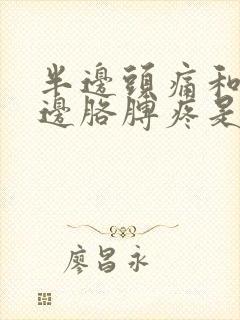 半邊頭痛和
邊胳膊疼是
廖昌永